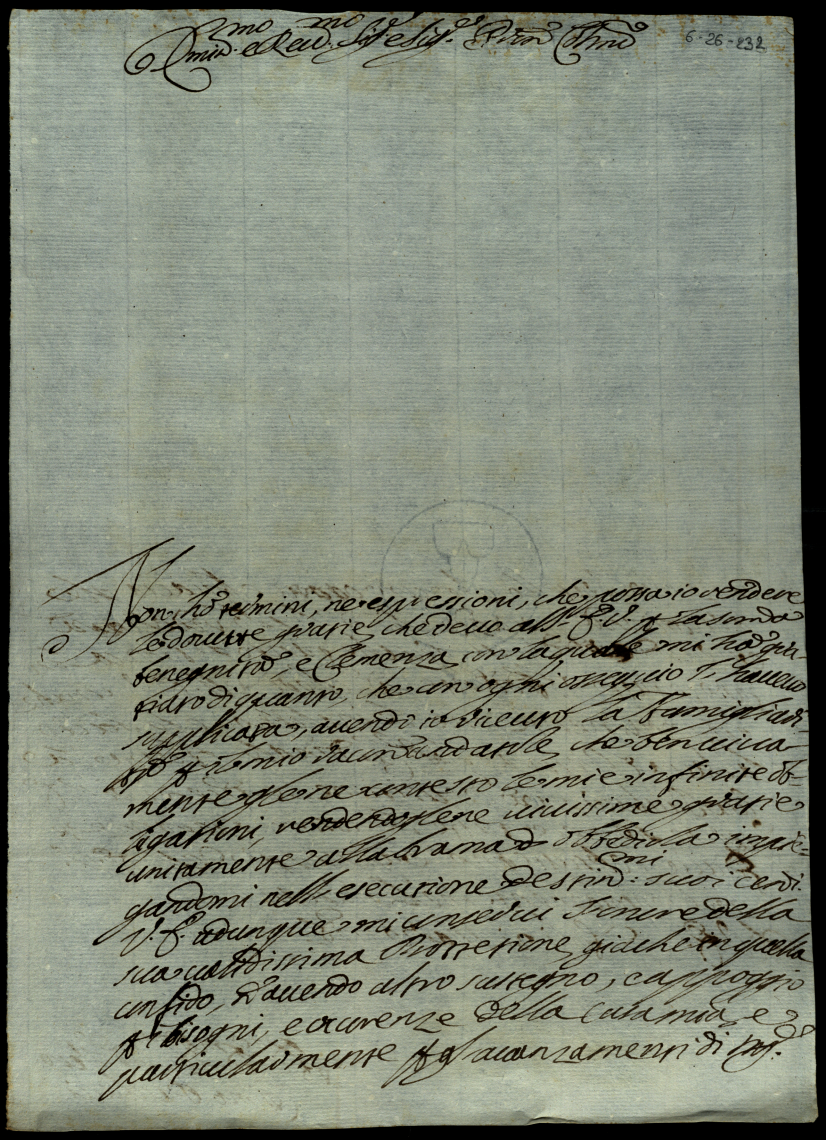 Em.mo e Rev.mo Sig.re e Sig.re P.ron Col.mo
6-26-232
Non hò termini, ne espressioni, che possa io rendere
le dovute gratie, che devo all' E. V. p la somma
benegnità, e Clemenza con la quale mi hà gra-
tiato di quanto, che con ogni ossequio l' havevo
supplicata, avendo io ricevuto la Famiglia
p il mio che ben viva-
mente gliene contesto le mie infinite ob-
ligationi, rendendogliene vivissime gratie
unitamente alla brama d' obbedirla impie-
gandomi nell' esecutione de stim.mi suoi cen̄i.
V. E. adunque mi conservi l' onore della
sua validissima Protettione, giache in quella
confido, avendo altro sustegno, e appoggio
p i bisogni, e ocurenze della Casa mia, e
particularmente p gl' avanzamenti di